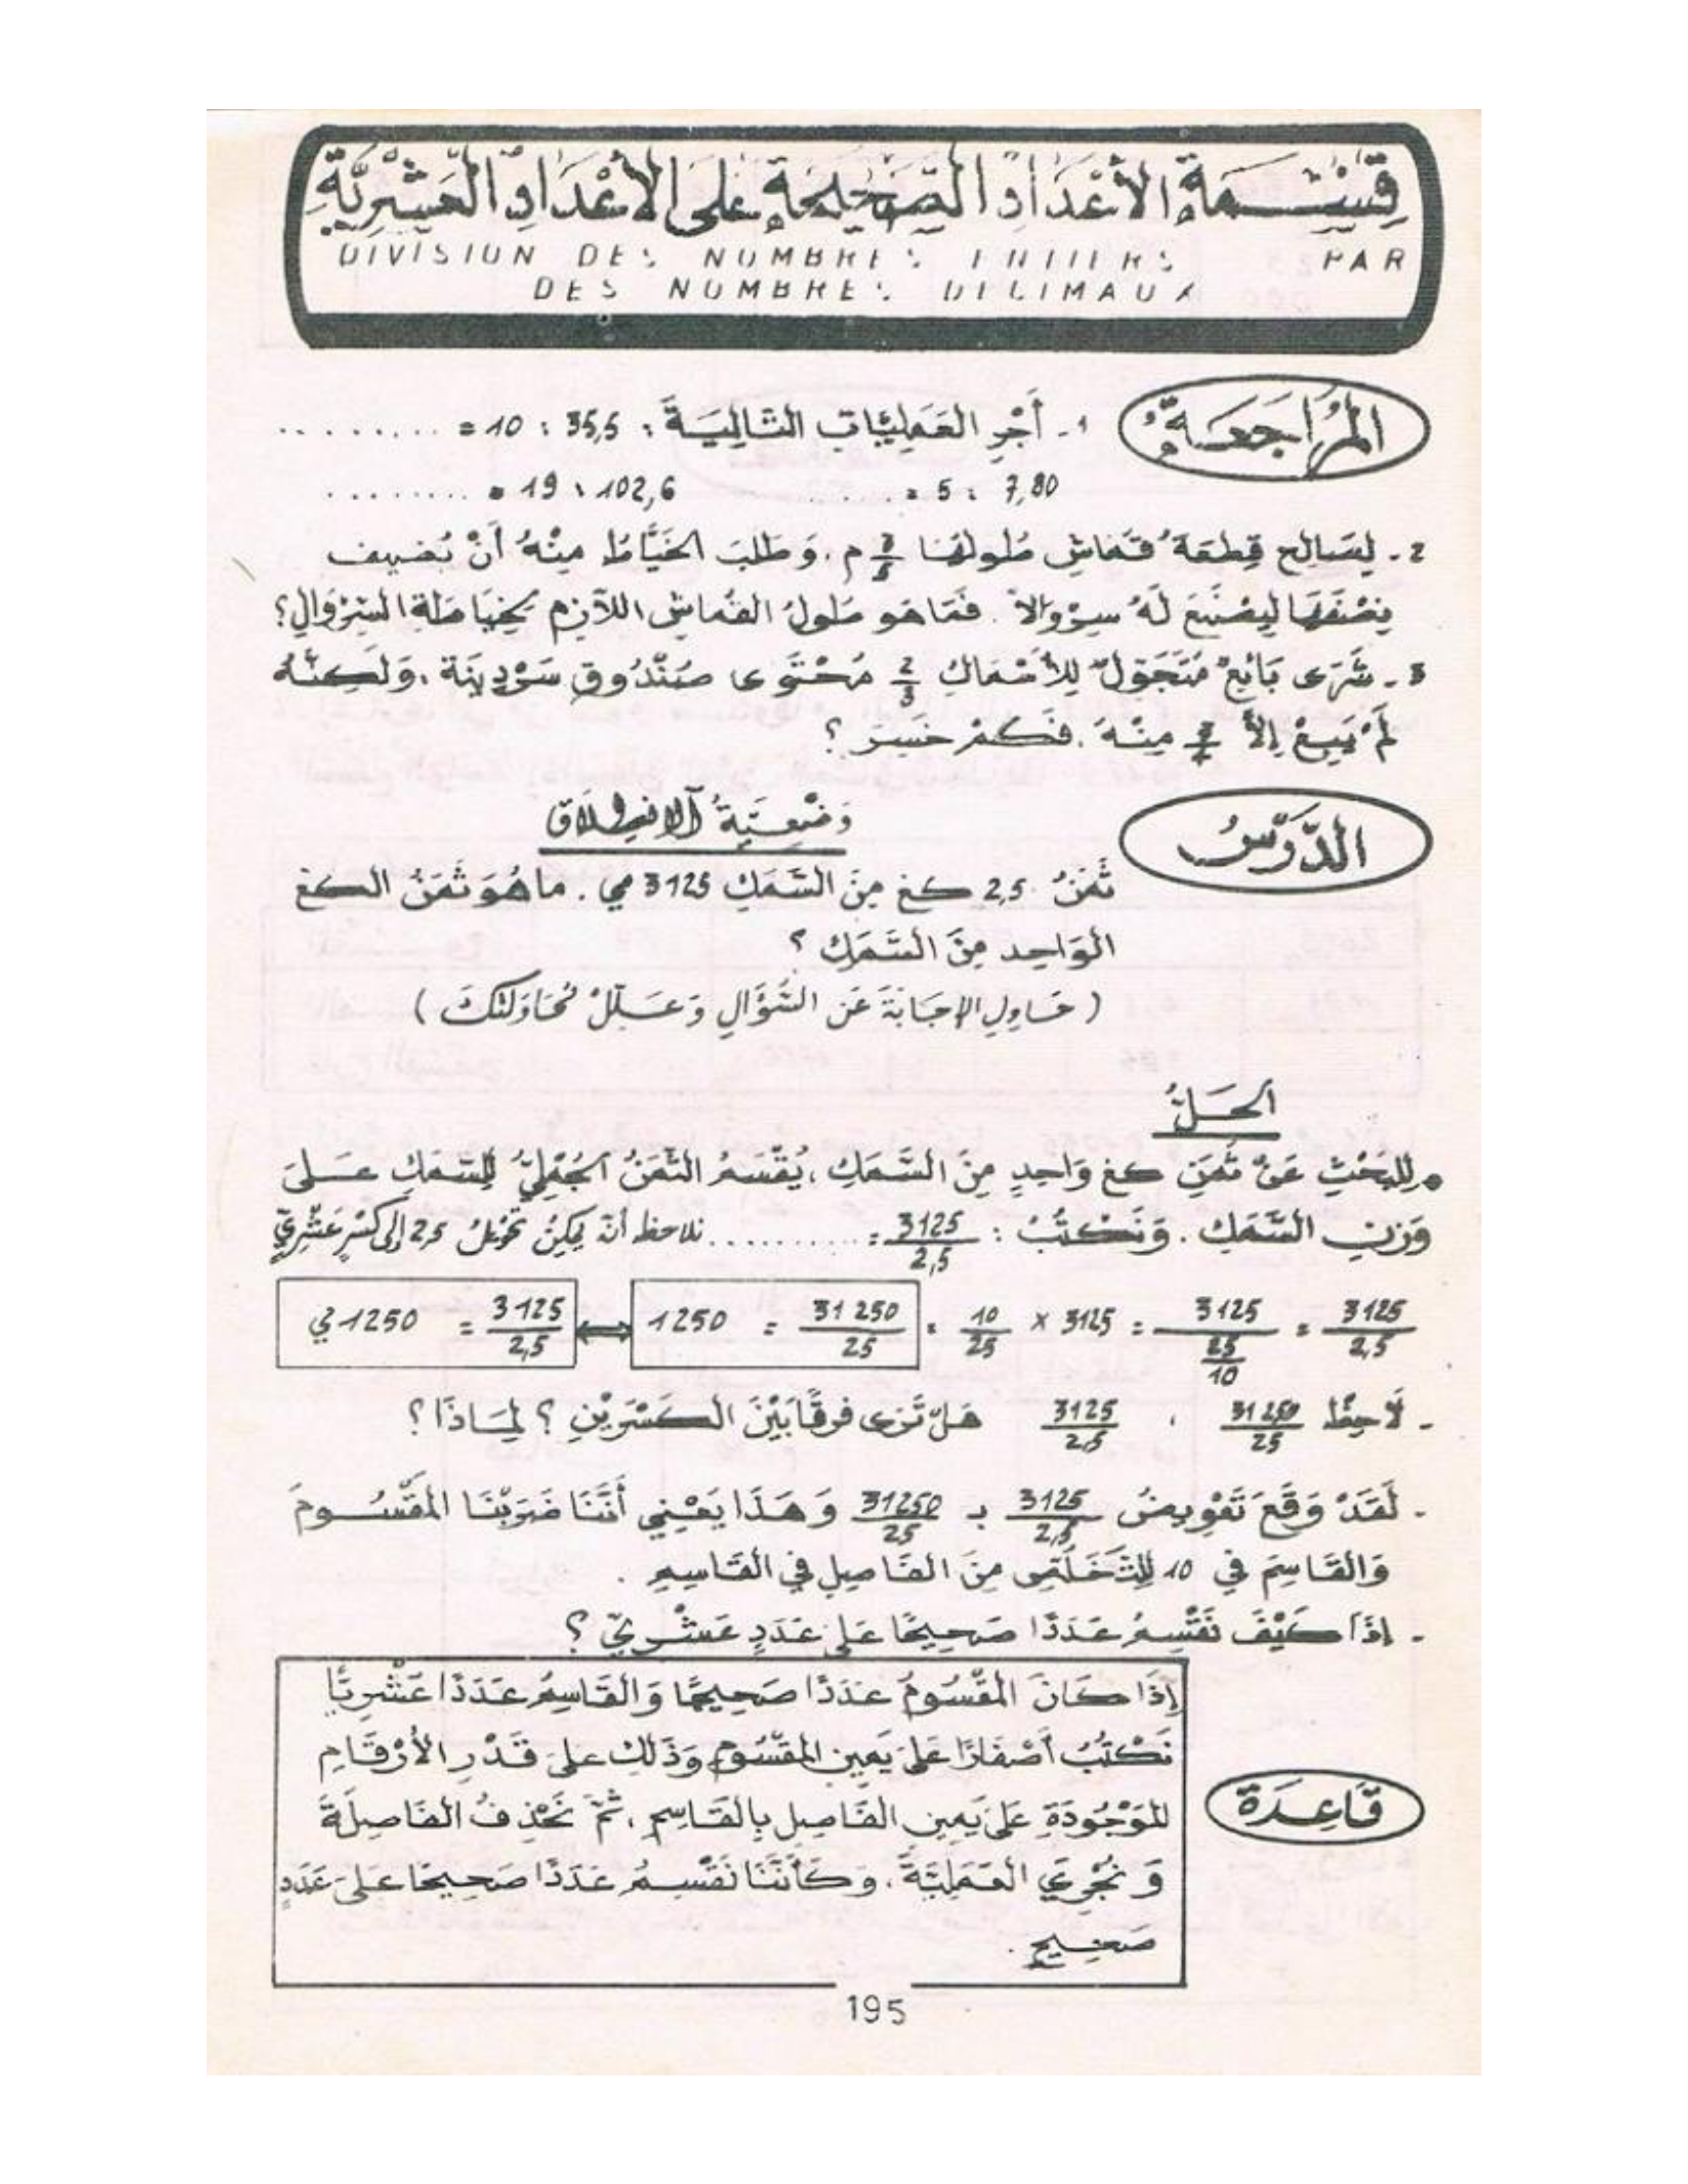 قِسْمَةُ الأَعْدَادِ الصَّحِيحَةِ عَلَى الأَعْدَادِ العَشْرِيَّةِ
DIVISION DES NOMBRES ENTIERS PAR
DES NOMBRES DECIMAUX
المُرَاجَعَةُ
1 - أَجْرِ العَمَلِيَّاتِ التَّالِيَةَ : 35,5 : 10 = .........
7,80 : 5 = ........ 102,6 : 19 = ........
2 - لِصَالِحٍ قِطْعَةُ قُمَاشٍ طُولُهَا م . وَطَلَبَ الخَيَّاطُ مِنْهُ أَنْ يُضِيفَ
نِصْفَهَا لِيَصْنَعَ لَهُ سِرْوَالاً . فَمَا هُوَ طُولُ القُمَاشِ اللاَّزِمِ لِخِيَاطَةِ السِّرْوَالِ ؟
3 - شَرَى بَائِعٌ مُتَجَوِّلٌ لِلأَسْمَاكِ 2/3 مُحْتَوَى صُنْدُوقِ سَرْدِينَة ، وَلَكِنَّهُ
لَمْ يَبِعْ إِلاَّ مِنْهُ . فَكَمْ خَسِرَ ؟
الدَّرْسُ
وَضْعِيَّةُ الانْطِلاَق
ثَمَنُ 2,5 كغ مِنَ السَّمَكِ 3125 مي . مَا هُوَ ثَمَنُ الكغ
الوَاحِدِ مِنَ السَّمَكِ ؟
( حَاوِلِ الإِجَابَةَ عَنِ السُّؤَالِ وَعَلِّلْ مُحَاوَلَتَكَ )
الحَلُّ
• لِلبَحْثِ عَنْ ثَمَنِ كغ وَاحِدٍ مِنَ السَّمَكِ ، يُقْسَمُ الثَّمَنُ الجُمْلِيُّ لِلسَّمَكِ عَلَى
وَزْنِ السَّمَكِ . وَنَكْتُبُ : 3125/2,5 = .......... نلاحظ أنّه يُمْكِنُ تَحْوِيلُ 2,5 إلى كَسْرٍ عَشْرِيٍّ
3125/2,5 = 3125/(25/10) = 3125 × 10/25 = 31250/25 = 1250 ⟷ 3125/2,5 = 1250 مي
- لاَحِظْ 31250/25 ، 3125/2,5 هَلْ تَرَى فرقًا بَيْنَ الكَسْرَيْنِ ؟ لِمَاذَا ؟
- لَقَدْ وَقَعَ تَعْوِيضُ 3125/2,5 بـ 31250/25 وَهَذَا يَعْنِي أَنَّنَا ضَرَبْنَا المَقْسُومَ
وَالقَاسِمَ فِي 10 لِلتَّخَلُّصِ مِنَ الفَاصِلِ فِي القَاسِمِ .
- إِذًا كَيْفَ نَقْسِمُ عَدَدًا صَحِيحًا عَلَى عَدَدٍ عَشْرِيٍّ ؟
قَاعِدَة
إِذَا كَانَ المَقْسُومُ عَدَدًا صَحِيحًا وَالقَاسِمُ عَدَدًا عَشْرِيًّا
نَكْتُبُ أَصْفَارًا عَلَى يَمِينِ المَقْسُومِ وَذَلِكَ عَلَى قَدْرِ الأَرْقَامِ
المَوْجُودَةِ عَلَى يَمِينِ الفَاصِلِ بِالقَاسِمِ ، ثُمَّ نَحْذِفُ الفَاصِلَةَ
وَنُجْرِي العَمَلِيَّةَ . وَكَأَنَّنَا نَقْسِمُ عَدَدًا صَحِيحًا عَلَى عَدَدٍ
صَحِيحٍ .
195